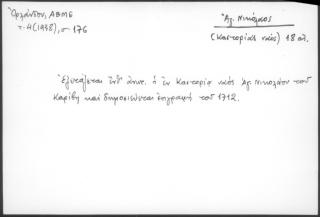 Ὀρλάνδος, ΑΒΜΕ
τ. 4 (1938), σ. 176
Ἁγ. Νικόλαος
(Καστοριᾶς ναός) 18 αἰ.
Ἐξετάζεται ὁ ἐν Καστορίᾳ ναός Ἁγ. Νικολάου τοῦ
Καρίβη καί δημοσιεύεται ἐπιγραφή τοῦ 1712.